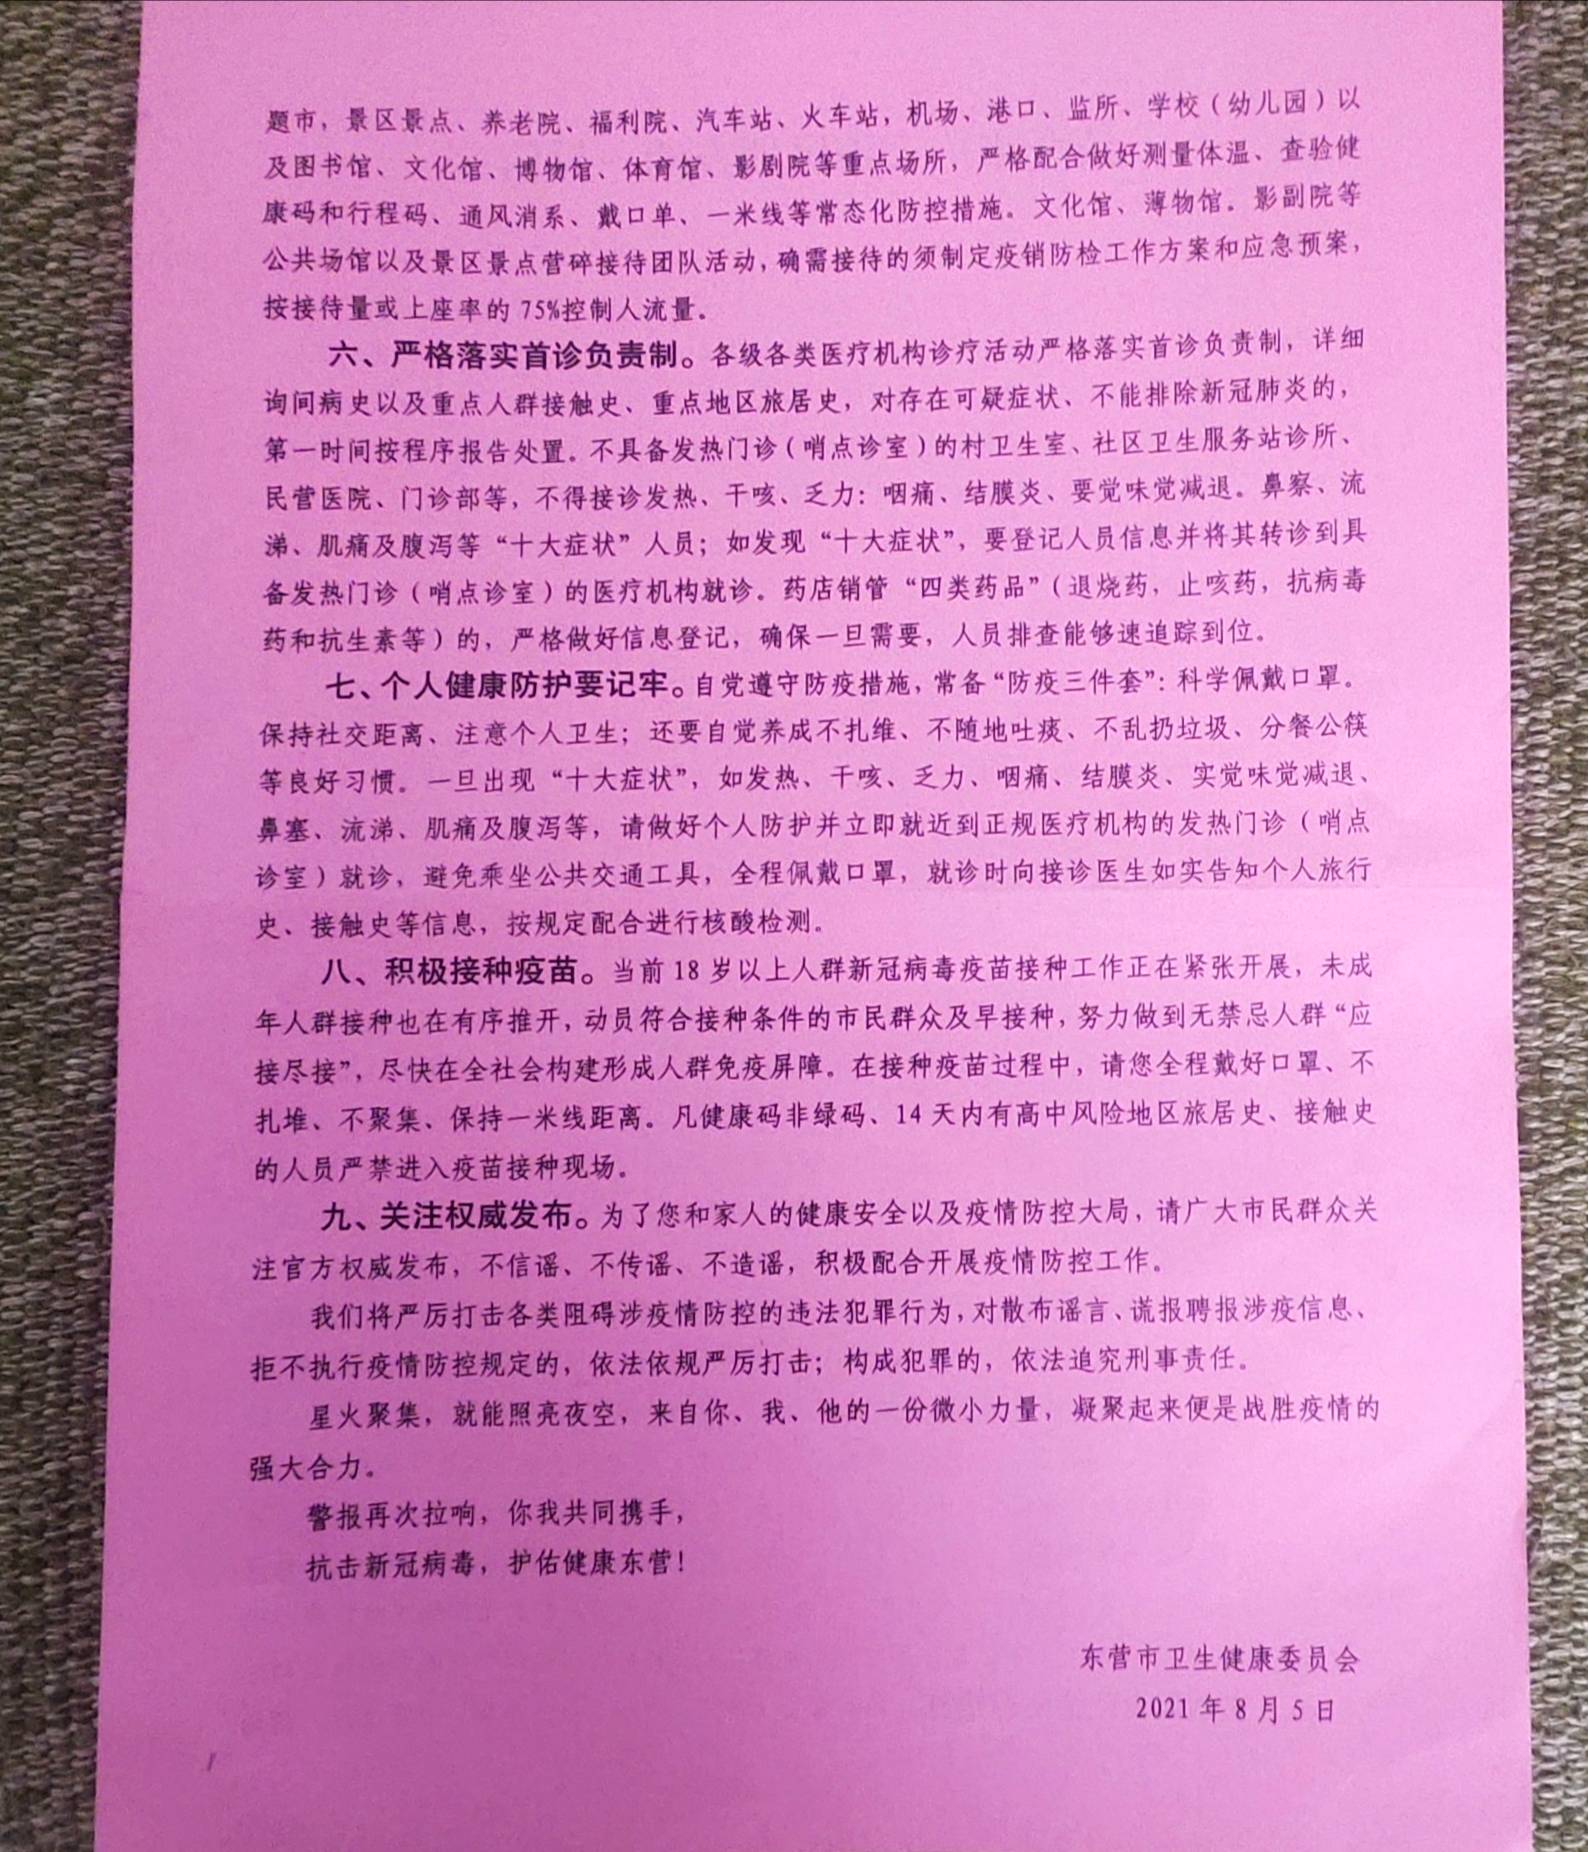 题市，景区景点、养老院、福利院、汽车站、火车站，机场、港口、监所、学校（幼儿园）以
及图书馆、文化馆、博物馆、体育馆、影剧院等重点场所，严格配合做好测量体温、查验健
康码和行程码、通风消系、戴口单、一米线等常态化防控措施。文化馆、薄物馆．影副院等
公共场馆以及景区景点营碎接待团队活动，确需接待的须制定疫销防检工作方案和应急预案，
按接待量或上座率的 75%控制人流量。
六、严格落实首诊负责制。各级各类医疗机构诊疗活动严格落实首诊负责制，详细
询间病史以及重点人群接触史、重点地区旅居史，对存在可疑症状、不能排除新冠肺炎的，
第一时间按程序报告处置。不具备发热门诊（哨点诊室）的村卫生室、社区卫生服务站诊所、
民营医院、门诊部等，不得接诊发热、干咳、乏力：咽痛、结膜炎、要觉味觉减退。鼻察、流
涕、肌痛及腹泻等“十大症状”人员；如发现“十大症状”，要登记人员信息并将其转诊到具
备发热门诊（哨点诊室）的医疗机构就诊。药店销管“四类药品”（退烧药，止咳药，抗病毒
药和抗生素等）的，严格做好信息登记，确保一旦需要，人员排查能够速追踪到位。
七、个人健康防护要记牢。自党遵守防疫措施，常备“防疫三件套”：科学佩戴口罩。
保持社交距离、注意个人卫生；还要自觉养成不扎维、不随地吐痰、不乱扔垃圾、分餐公筷
等良好习惯。一旦出现“十大症状”，如发热、干咳、乏力、咽痛、结膜炎、实觉味觉减退、
鼻塞、流涕、肌痛及腹泻等，请做好个人防护并立即就近到正规医疗机构的发热门诊（哨点
诊室）就诊，避免乘坐公共交通工具，全程佩戴口罩，就诊时向接诊医生如实告知个人旅行
史、接触史等信息，按规定配合进行核酸检测。
八、积极接种疫苗。当前 18 岁以上人群新冠病毒疫苗接种工作正在紧张开展，未成
年人群接种也在有序推开，动员符合接种条件的市民群众及早接种，努力做到无禁忌人群“应
接尽接”，尽快在全社会构建形成人群免疫屏障。在接种疫苗过程中，请您全程戴好口罩、不
扎堆、不聚集、保持一米线距离。凡健康码非绿码、14 天内有高中风险地区旅居史、接触史
的人员严禁进入疫苗接种现场。
九、关注权威发布。为了您和家人的健康安全以及疫情防控大局，请广大市民群众关
注官方权威发布，不信谣、不传谣、不造谣，积极配合开展疫情防控工作。
我们将严厉打击各类阻碍涉疫情防控的违法犯罪行为，对散布谣言、谎报聘报涉疫信息、
拒不执行疫情防控规定的，依法依规严厉打击；构成犯罪的，依法追究刑事责任。
星火聚集，就能照亮夜空，来自你、我、他的一份微小力量，凝聚起来便是战胜疫情的
强大合力。
警报再次拉响，你我共同携手，
抗击新冠病毒，护佑健康东营！
东营市卫生健康委员会
2021 年 8 月 5 日